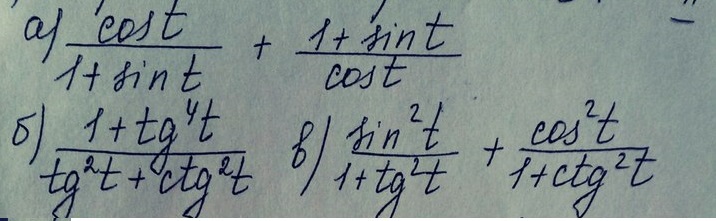 а) cost/(1+sint) + (1+sint)/cost
б) (1+tg⁴t)/(tg²t+ctg²t) в) sin²t/(1+tg²t) + cos²t/(1+ctg²t)